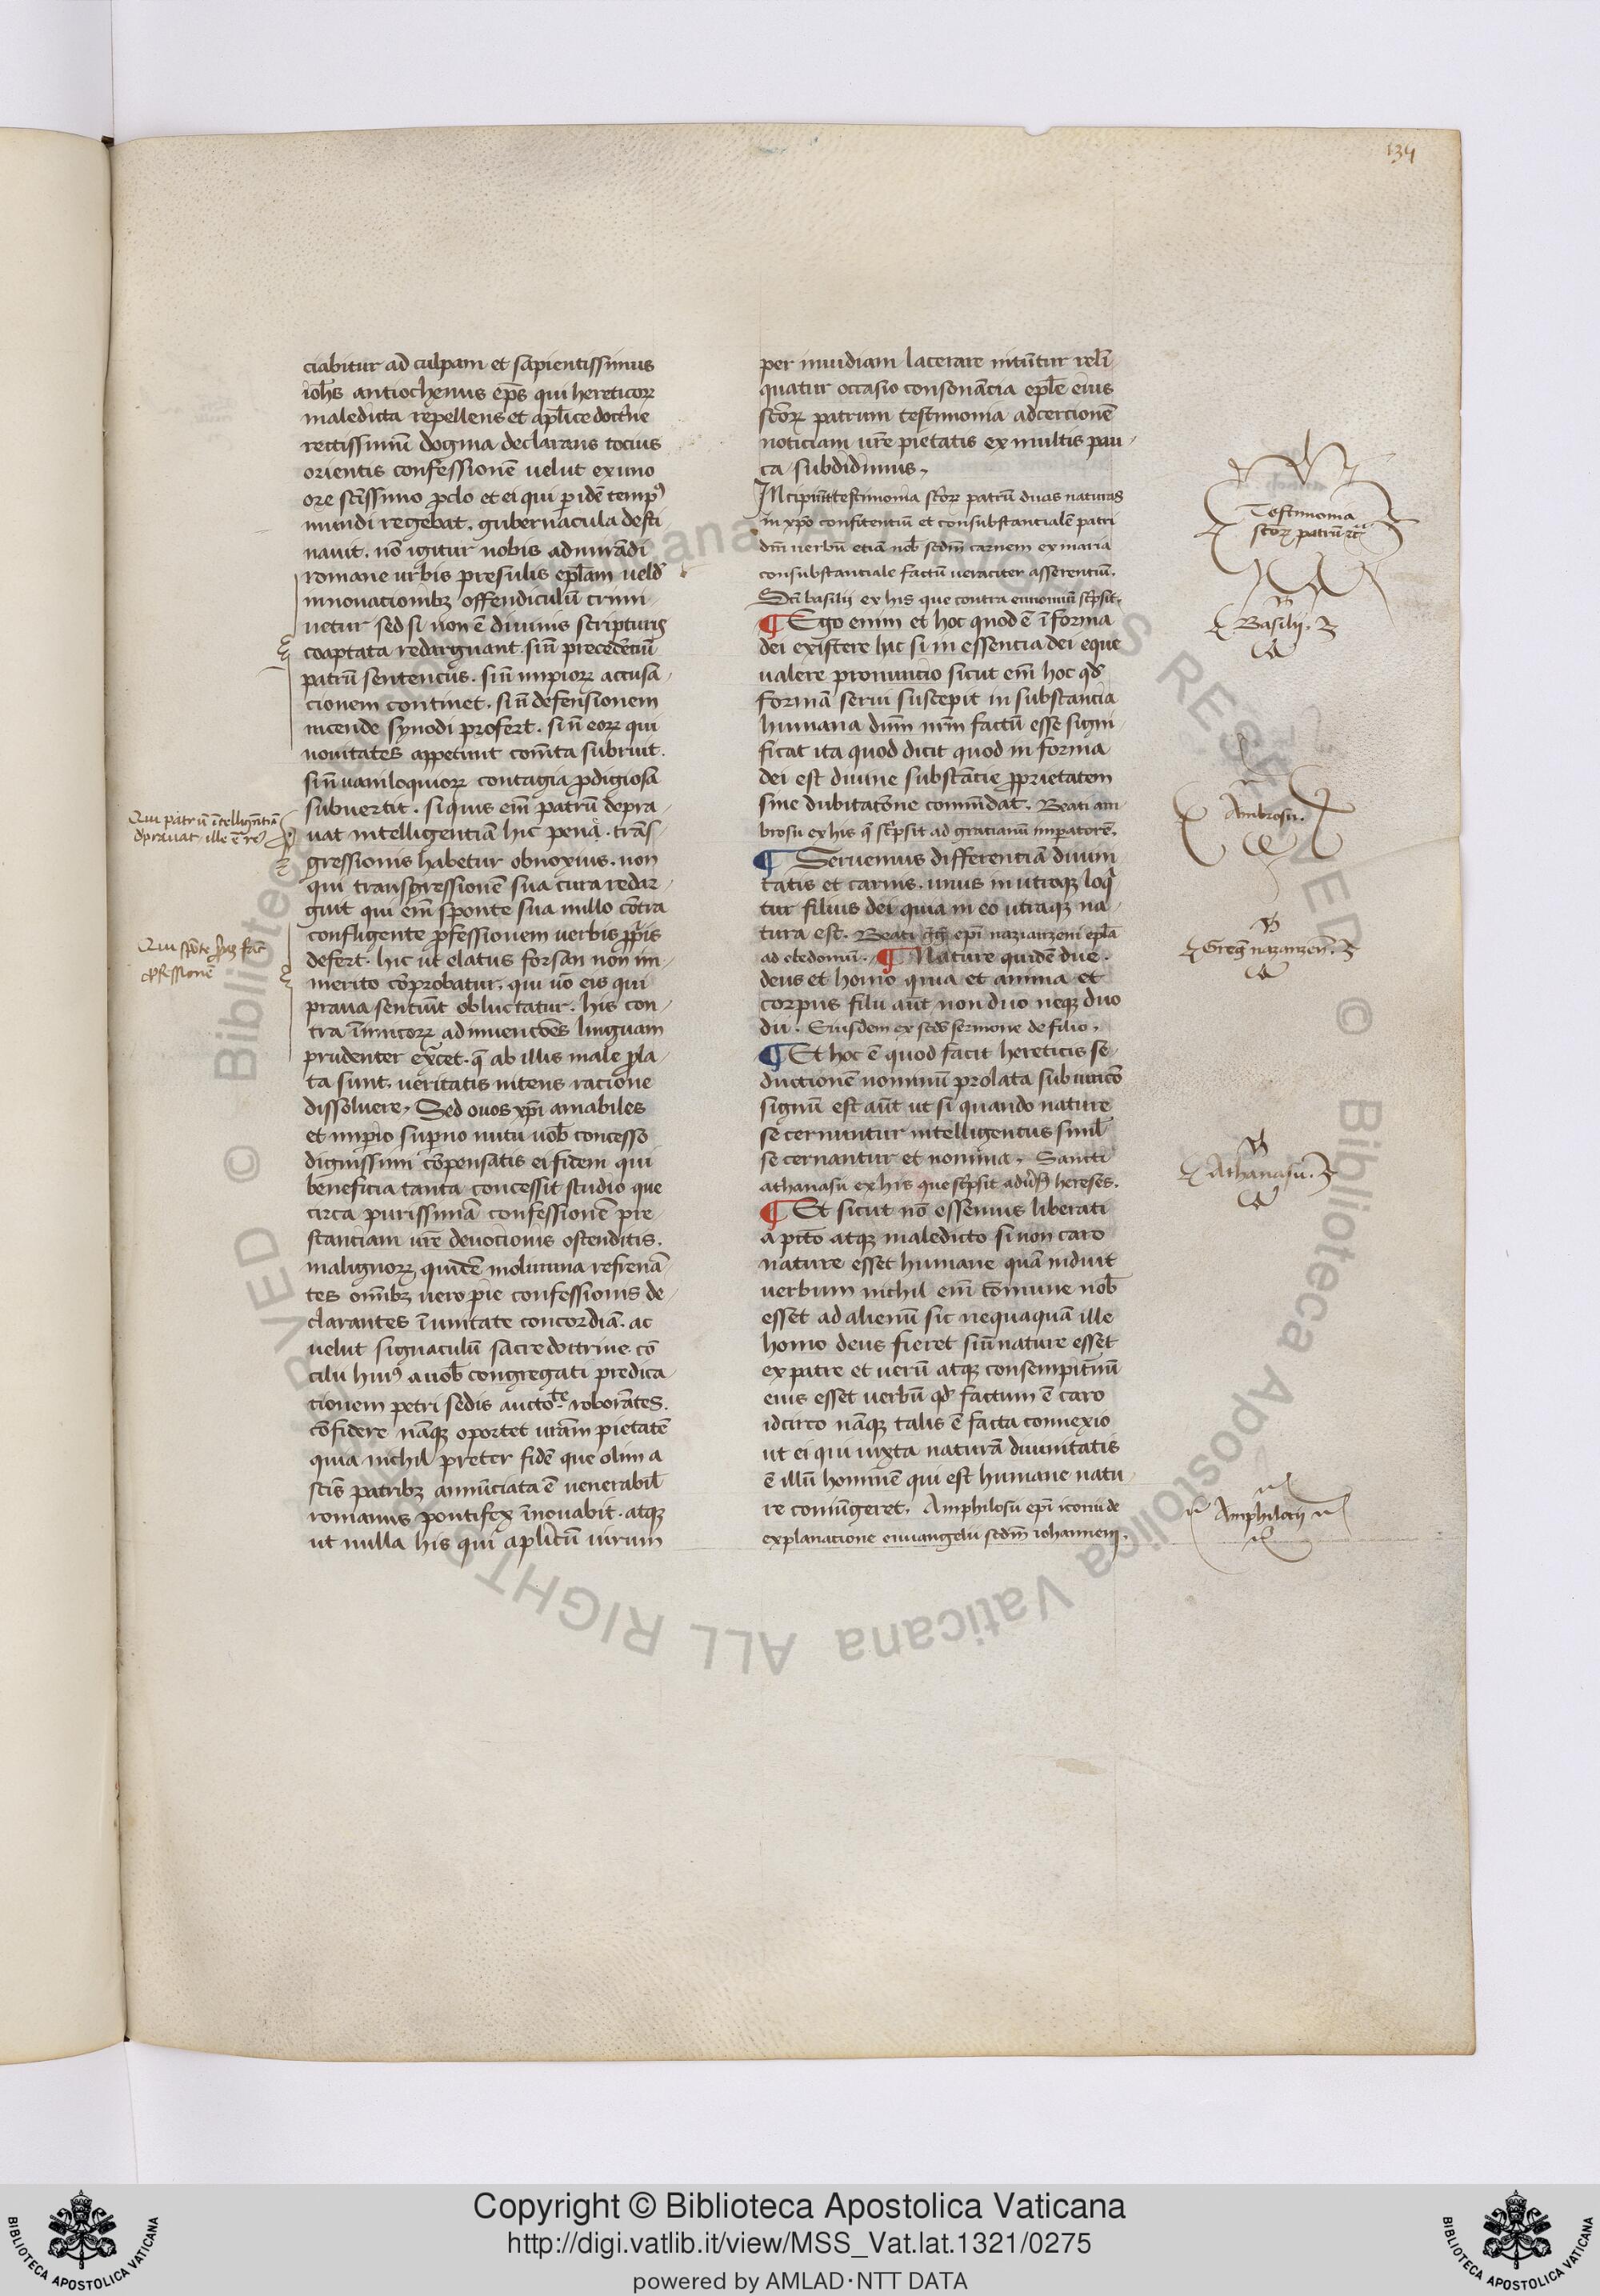 134
ciabitur ad culpam et sapientissimus
ioh̄s antiochenus ep̄s qui hereticoꝝ
maledicta repellens et apl̄ice doct'ne
rectissimū dogma declarans tocius
orientis confessionē uelut ex uno
ore sc̄issimo ꝓclo et ei qui ꝑ idē temp⁹
mundi regebat . gubernacula desti
nauit . nō igitur nobis admirādi
romane urbis presulis ep̄lam uelđ
innouacionibꝫ offendiculū crimi
netur sed si non ē diuinis scripturis
coaptata redarguant . si n̄ precedētiū
patrū sentenciis . si n̄ impioꝝ accusa
cionem continet . si n̄ defensionem
nicende synodi profert . si n̄ eoꝝ qui
nouitates appetunt com̄ta subruit .
si n̄ uaniloquioꝝ contagia ꝓdigiosa
subuertit . si quis em̄ patrū depra
uat intelligentiā hic pena . trās
gressionis habetur obnoxius . non
qui transgressionē sua cura redar
guit qui em̄ sponte sua nullo cōtra
confligente ꝓfessionem uerbis ꝓpriis
defert . hic ut elatus forsan non im
merito cōprobatur . qui ūo eis qui
praua sentiūt obluctatur . his con
tra īimicoꝝ adinuencōes linguam
prudenter exercet . q̄ ab illis male ꝓla
ta sunt . ueritatis nitens racione
dissoluere , Sed o uos xp̄i amabiles
et imperio supno nutu uob̄ concesso
dignissimi cōpensatis ei fidem qui
beneficia tanta concessit studio que
circa purissimā confessionē pre
stanciam ure deuocionis ostenditis .
malignoꝝ quidē molimina refrenā
tes om̄ibꝫ uero pie confessionis de
clarantes ī unitate concordiā . ac
uelut signaculū sacre doctrine cō
cilii hui⁹ a uob̄ congregati predica
tionem petri sedis aucto.te roborātes .
cōfidere nāqꝫ oportet uīam pietatē
quia nichil preter fidē que olim a
sc̄is patribꝫ annūciata ē uenerabil̄
romanus pontifex īnouabit . atqꝫ
ut nulla his qui apl̄icū uirum
per inuidiam lacerare nitūtur reli
quatur occasio consonācia ep̄le eius
sc̄oꝝ patrum testimonia ad cercionē
noticiam ur̄e pietatis ex multis pau
ca subdidimus ,
Incipiūt testimonia sc̄oꝝ patrū duas naturas
in xp̄o confitentiū et consubstancialē patri
dm̄ uerbū etiā nob̄ scđm carnem ex maria
consubstanciale factū ueraciter asserentiū .
Sc̄i basilij ex his que contra eunomiū sc̄psit .
¶ Ego enim et hoc quod ē ī forma
dei existere hic si in essencia dei eque
ualere pronuncio sicut em̄ hoc qđ
formā serui suscepit in substancia
humana dn̄m nr̄m factū esse signi
ficat ita quod dicit quod in forma
dei est diuine substācie ꝓprietatem
sine dubitatōne comēdat . Beati am
brosii ex his q̄ sc̄psit ad gracianū imperatorē .
¶ Seruemus differentiā diuini
tatis et carnis . unus in utroqꝫ loq̄
tur filius dei quia in eo utraqꝫ na
tura est . Beati g̃g̃ ep̄i nazianzeni ep̄la
ad cledonium . ¶ Nature quidē due .
deus et homo quia et anima et
corpus filii aūt non duo neqꝫ duo
dii . Eiusdem ex scđo sermone de filio .
¶ Et hoc ē quod facit hereticis se
ductionē nominū prolata sub inicō
signū est aūt ut si quando nature
se cernuntur intelligenciis simil̄
se cernantur et nomina , Sancti
athanasii ex his que sc̄psit aduers⁹ hereses .
¶ Et sicut nō essemus liberati
a pc̄to atqꝫ maledicto si non caro
nature esset humane quā induit
uerbum nichil em̄ cōmune nob̄
esset ad alienū sic nequaquā ille
homo deus fieret si n̄ nature esset
ex patre et uerū atqꝫ consempit̄nū
eius esset uerbū qđ factum ē caro
idcirco nāqꝫ talis ē facta connexio
ut ei qui iuxta naturā diuinitatis
ē illū hominē qui est humane natu
re coniūgeret . Amphilosii ep̄i iconii de
explanacione euuangelii scđm iohannem .
Qui patrū ītelligētiā
dprauat ille ē re⁹
Qui spōte
ꝓfessionē
Testimonia
sc̄toꝝ patrū
Basilij .
Ambrosii .
Greg̃ nazanzen̄ .
Athanasii .
Amphilocij
Copyright © Biblioteca Apostolica Vaticana
http://digi.vatlib.it/view/MSS_Vat.lat.1321/0275
powered by AMLAD·NTT DATA
BIBLIOTECA APOSTOLICA VATICANA
BIBLIOTECA APOSTOLICA VATICANA
© Biblioteca Apostolica Vaticana ALL RIGHTS RESERVED